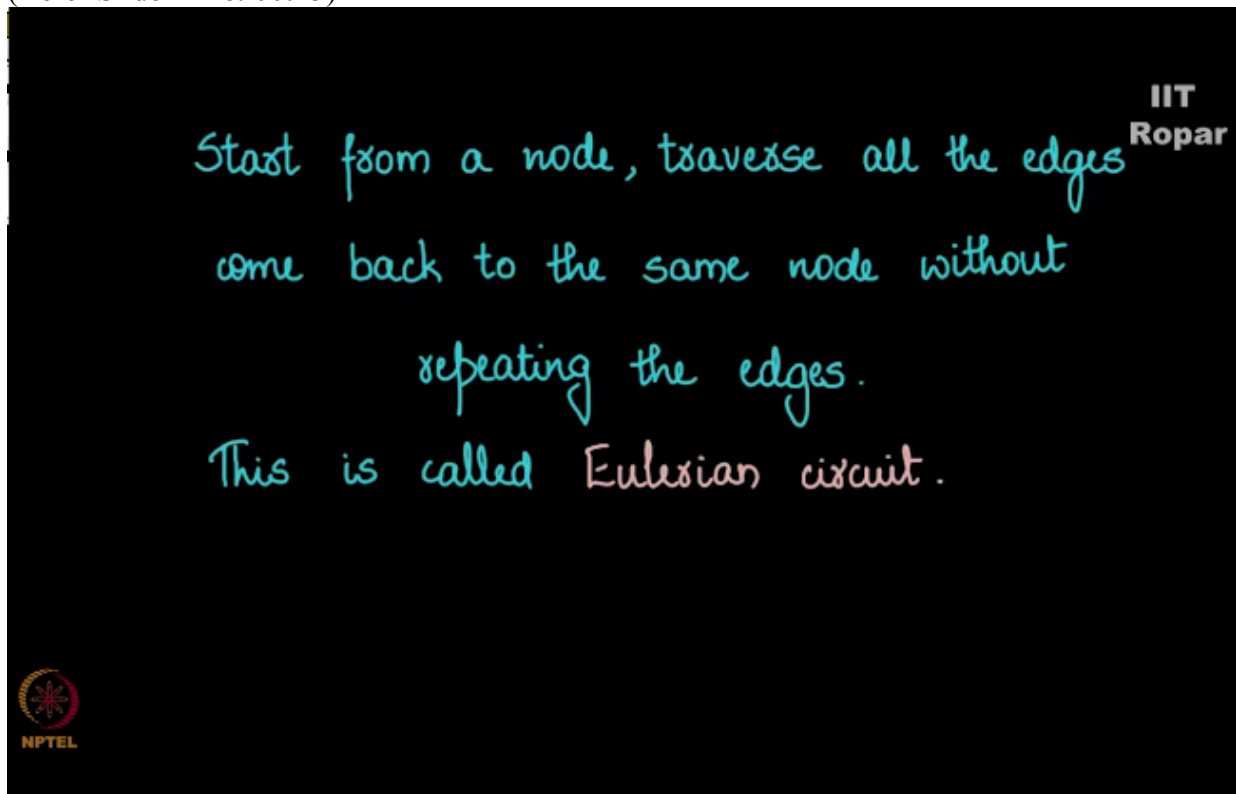 IIT
Ropar
Start from a node, traverse all the edges
come back to the same node without
repeating the edges.
This is called Eulerian circuit.
NPTEL